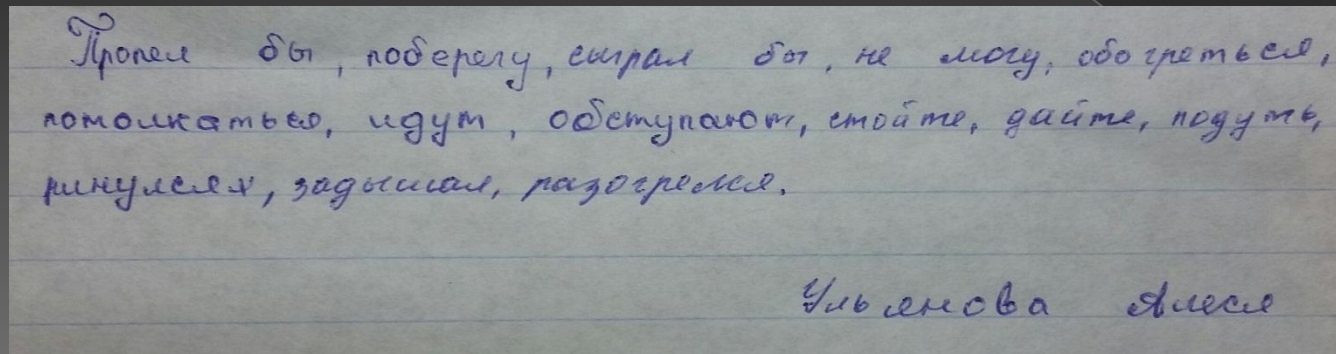 Пропел бы, поберегу, сыграл бы, не могу, обогреться,
потолкаться, идут, обступают, стойте, дайте, подуть,
ринулся, задышал, разогрелся.
Ульянова Алеся